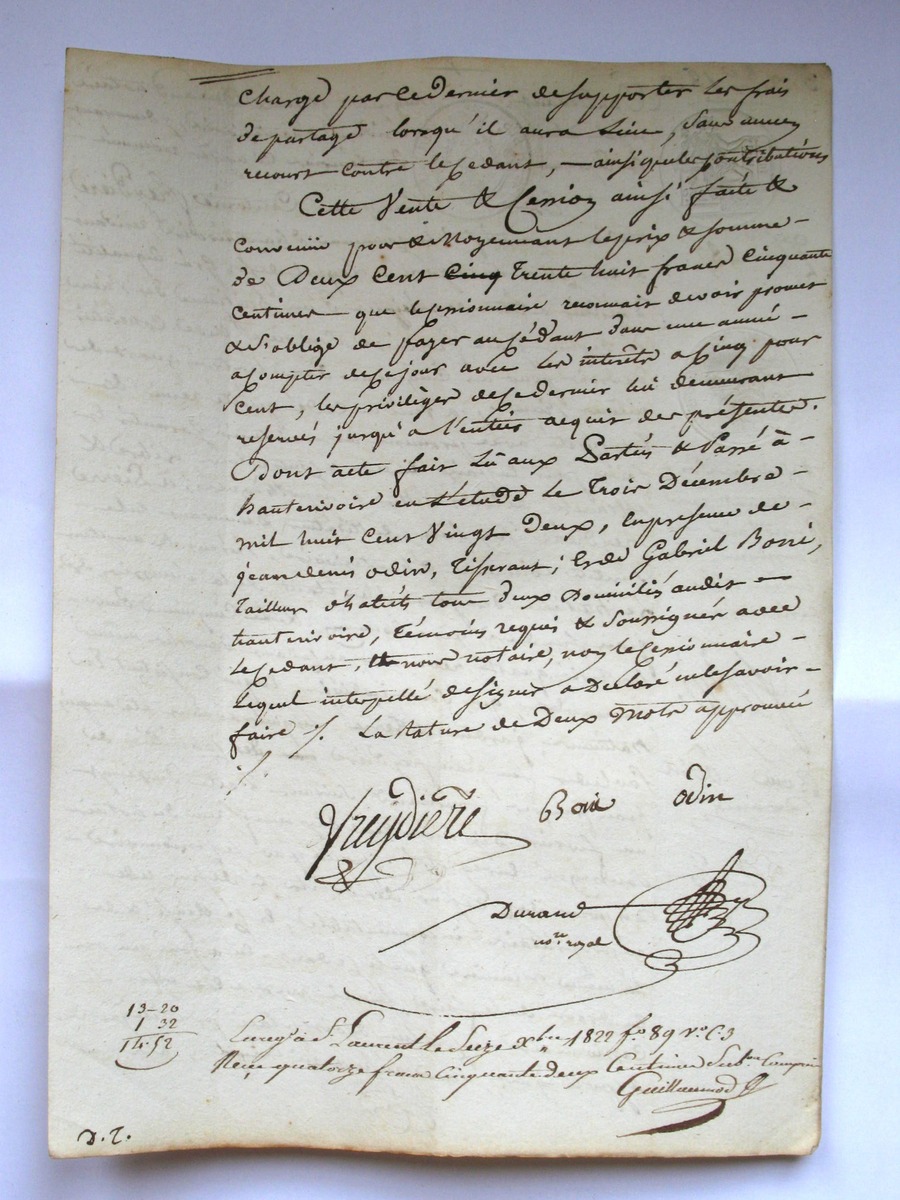 chargé par ce dernier de supporter les frais
de partage lorsqu'il aura lieu, sans aucun
recourt contre le Cedant, — ainsi que les Contributions
Cette Vente & Cession ainsi faite &
Convenue pour & Moyennant le prix & somme —
de Deux Cent Cinq trente huit francs Cinquante
Centimes que le Cessionnaire reconnait devoir promet
& s'oblige de payer au Cédant dans une année —
a Compter de Ce jour avec les interêts a Cinq pour
Cent, les privilèges de Ce dernier lui demeurant
reservés jusqu'a l'entier acquit des présentes.
Dont acte fait Lû aux Parties & Passé à —
hauterivoire en L'étude le Trois Décembre —
mil huit Cent Vingt Deux, En presence de —
jean denis odin, Tisserant; & de Gabriel Borie,
Tailleur d'habits tous deux Domiciliés audit —
hauterivoire, Témoins requis & Soussignés avec
le Cedant, nous notaire, non le Cessionnaire —
lequel interpellé de signer a Déclaré ne le savoir —
faire ./. La Rature de Deux mots approuvée
./.
Freydière Borie odin
Durand
nore. royal
13-20
1 32
14.52
Enregé. a St Laurent Le Seize Xbre 1822 fo. 89 Vo. C.3
Reçu quatorze francs Cinquante deux Centimes Subon. Compris
Guillaumod
D.T.